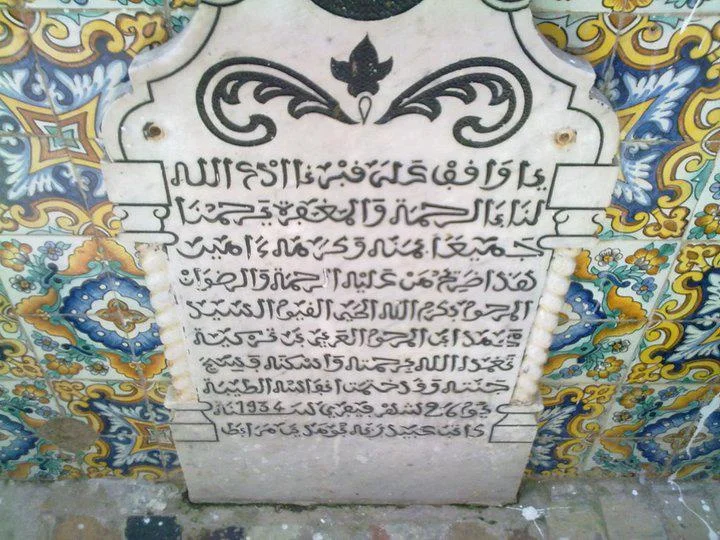 يا واقف على قبرنا ادع الله
لنا الرحمة والمغفرة ترحمنا
جميعا بمنه وكرمه ءامين
هذا ضريح من عليه الرحمة والرضوان
المرحوم بكرم الله الحي القيوم السيد
محمد ابن المرحوم العربي بن
تغمده الله برحمته واسكنه فسيح
جنته وقد ختمت انفاسه الطيبة
في 26 لشهر فيفري سنة 1934